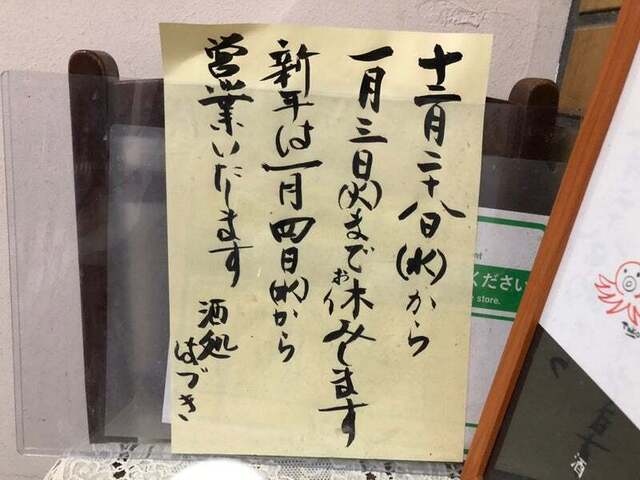 十二月二十八日(水)から
一月三日(火)まで
お休みします
新年は一月四日(水)から
営業いたします
酒処
はづき
ください
store.
酒